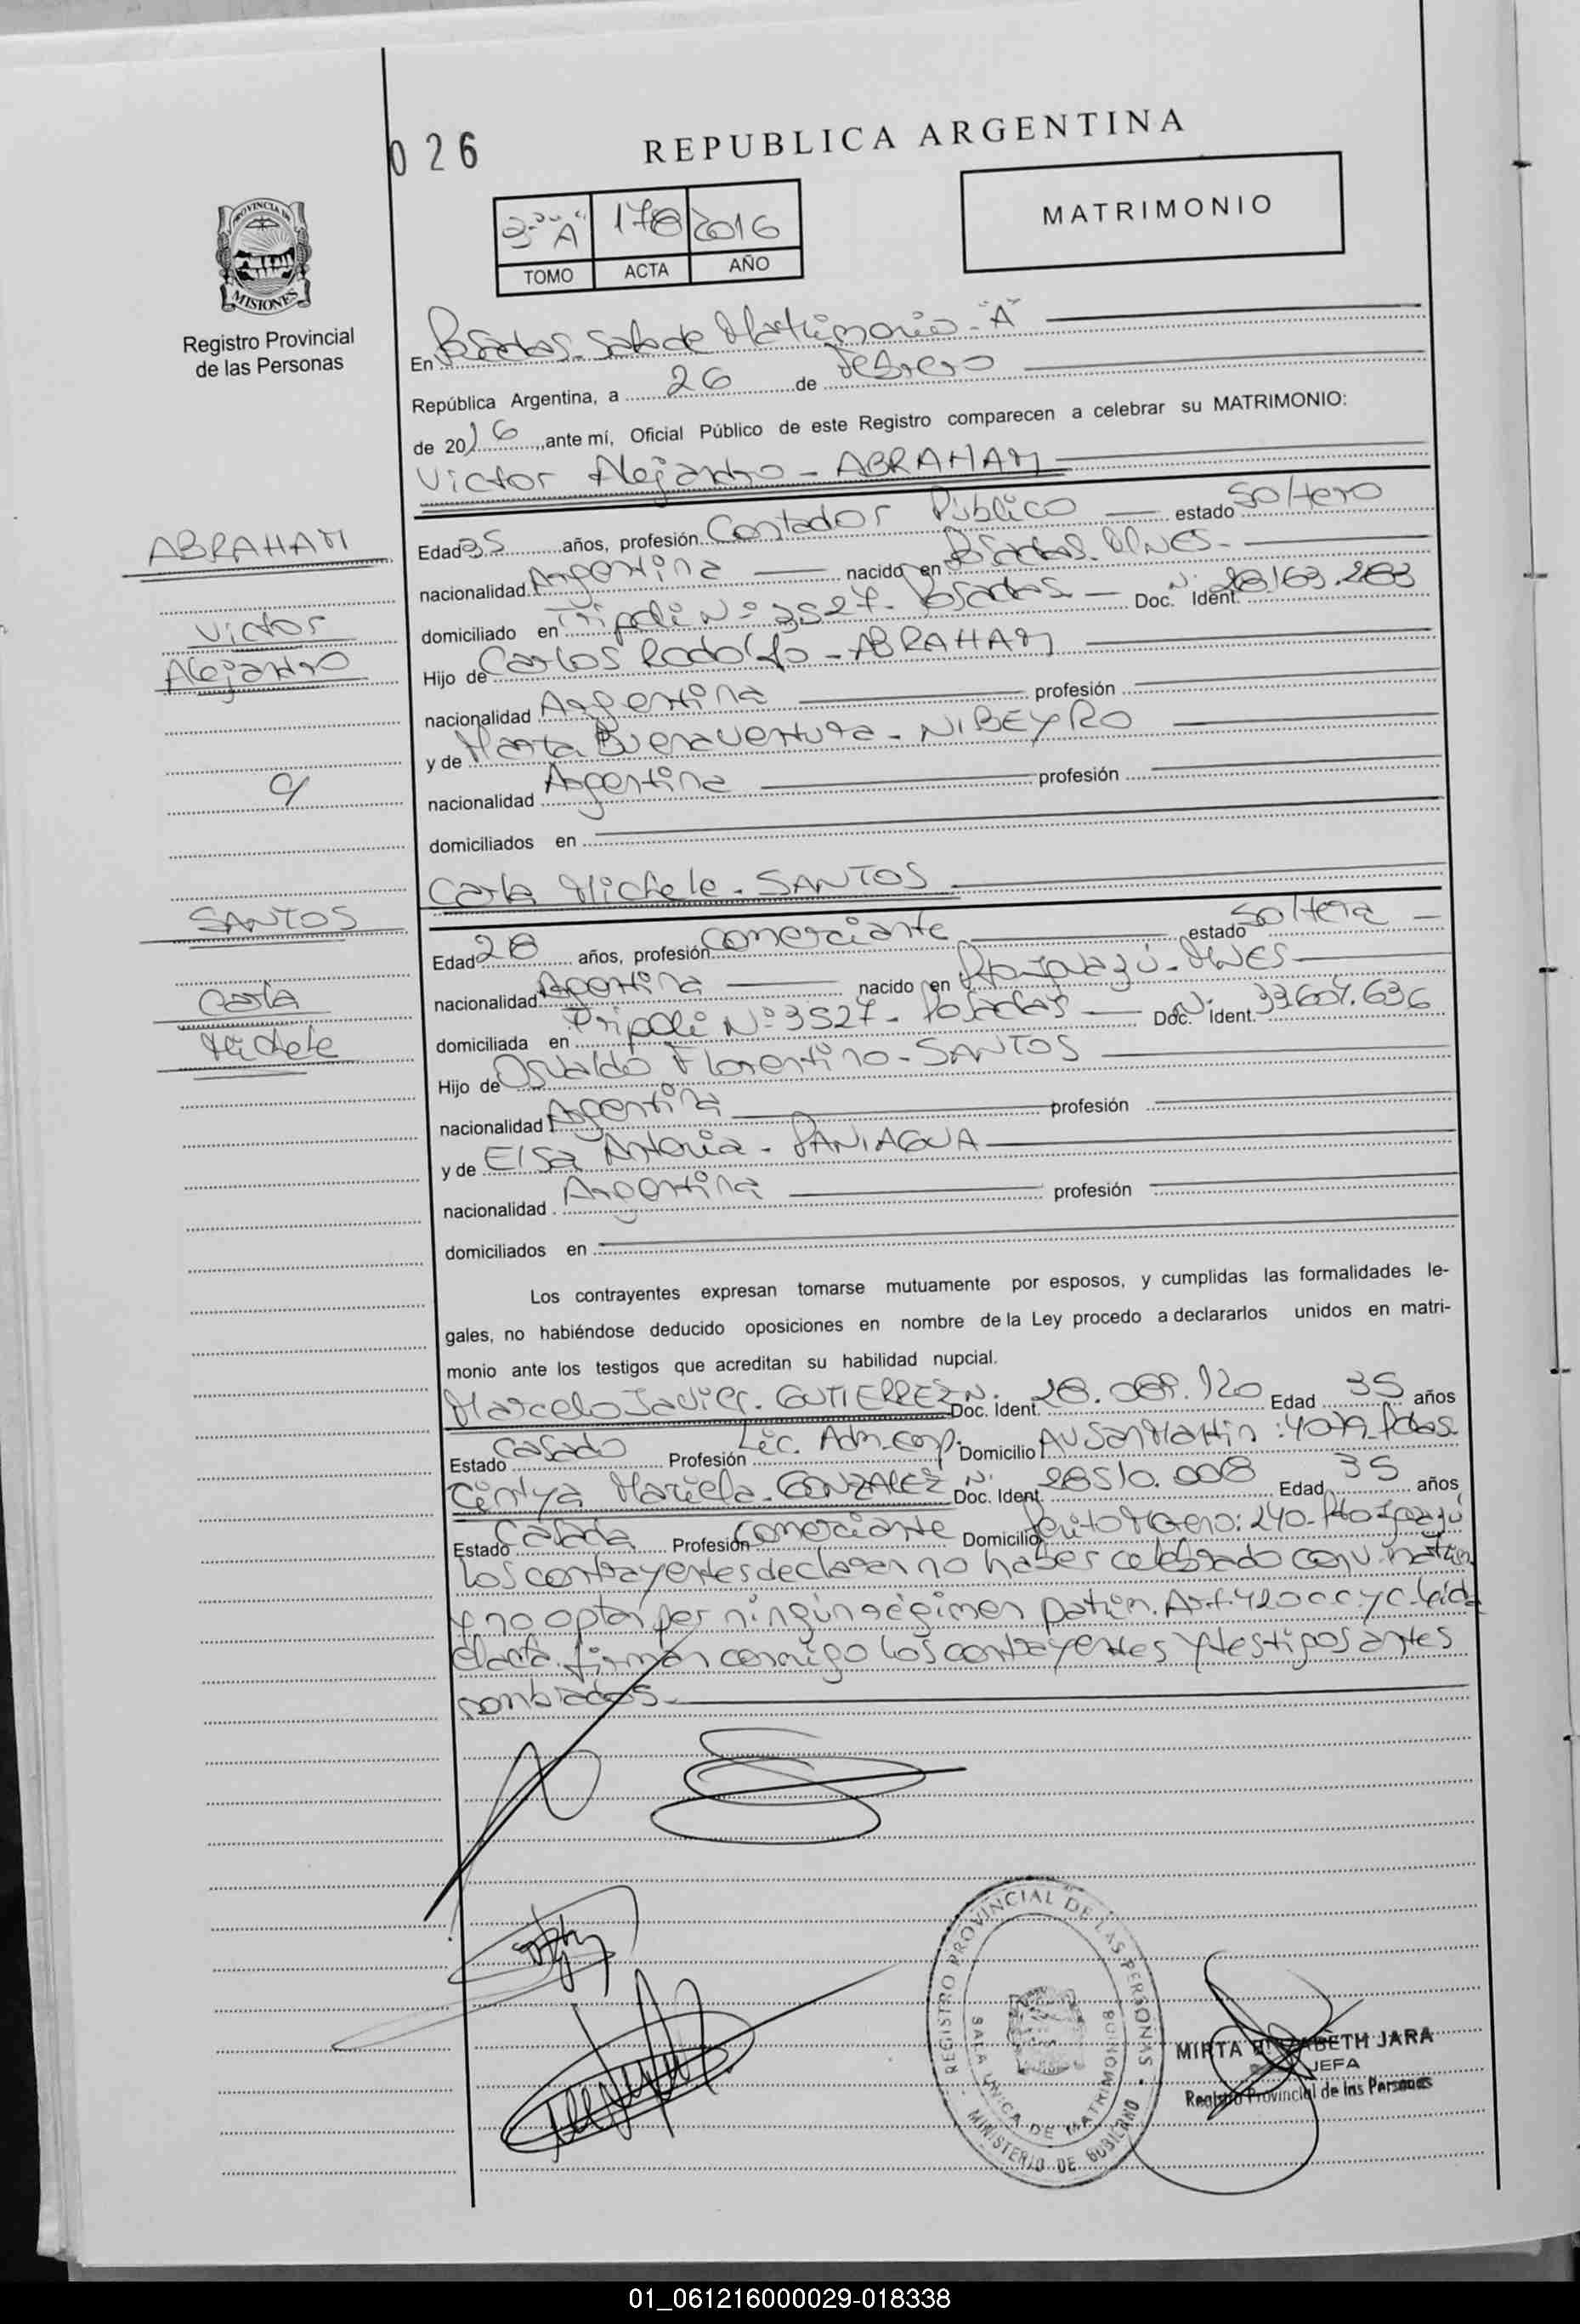 026
REPUBLICA ARGENTINA
PROVINCIA DE
MISIONES
Registro Provincial
de las Personas
3º "A" 178 2016
TOMO ACTA AÑO
MATRIMONIO
En Posadas. Sala de Matrimonio - "A"
República Argentina, a 26 de Febrero
de 2016, ante mí, Oficial Público de este Registro comparecen a celebrar su MATRIMONIO:
Victor Alejandro - ABRAHAM
ABRAHAM
Victor
Alejandro
c/
SANTOS
Carla
Michele
Edad 35 años, profesión Contador Público estado Soltero
nacionalidad Argentina nacido en Posadas. Mnes.
domiciliado en Tripoli Nº 3527 - Posadas Doc. Ident. N. 28.163.283
Hijo de Carlos Rodolfo - ABRAHAM
nacionalidad Argentina profesión
y de Marta Buenaventura - NIBEYRO
nacionalidad Argentina profesión
domiciliados en
Carla Michele - SANTOS
Edad 28 años, profesión Comerciante estado Soltera
nacionalidad Argentina nacido en Pto Iguazú - Mnes
domiciliada en Tripoli Nº 3527 - Posadas Doc. Ident. N. 33.607.636
Hijo de Osvaldo Florentino - SANTOS
nacionalidad Argentina profesión
y de Elsa Antonia - PANIAGUA
nacionalidad Argentina profesión
domiciliados en
Los contrayentes expresan tomarse mutuamente por esposos, y cumplidas las formalidades le-
gales, no habiéndose deducido oposiciones en nombre de la Ley procedo a declararlos unidos en matri-
monio ante los testigos que acreditan su habilidad nupcial.
Marcelo Javier - GUTIERREZ Doc. Ident. N. 28.089.120 Edad 35 años
Estado Casado Profesión Lic. Adm. emp. Domicilio Av San Martin: 4079 Pdas.
Cintya Mariela - GONZALEZ Doc. Ident. N. 28510.008 Edad 35 años
Estado Casada Profesión Comerciante Domicilio Perito Moreno: 240 - Pto Iguazú
Los contrayentes declaran no haber celebrado conv. matrim.
y no optan por ningún régimen patrim. Art. 420 CC y C. Leída
el acta, firman conmigo los contrayentes y testigos antes
nombrados.
REGISTRO PROVINCIAL DE LAS PERSONAS
SALA UNICA DE MATRIMONIOS
MINISTERIO DE GOBIERNO
MIRTA ELIZABETH JARA
JEFA
Registro Provincial de las Personas
01_061216000029-018338